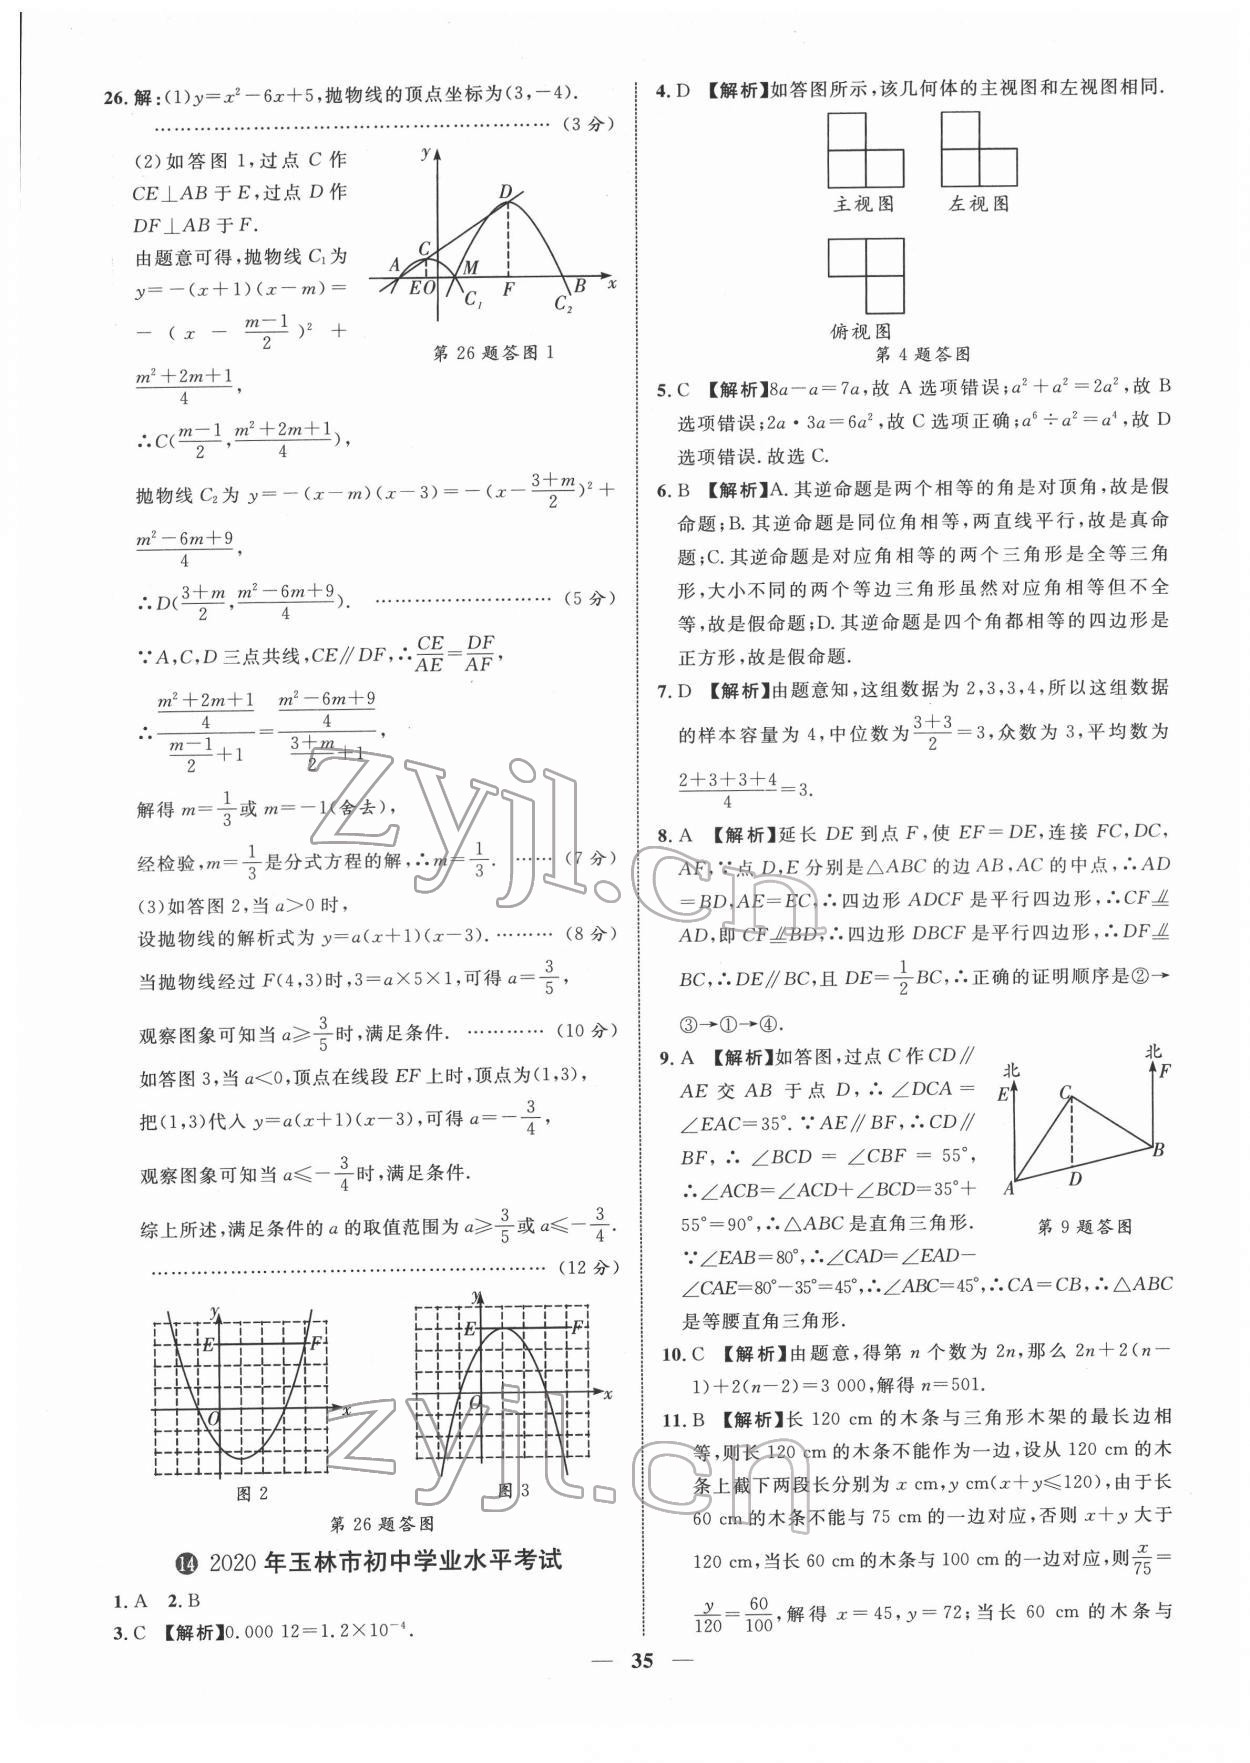 26. 解:(1)y=x²-6x+5,抛物线的顶点坐标为(3,-4).
……………………………………………… (3 分)
(2)如答图 1,过点 C 作
CE⊥AB 于 E,过点 D 作
DF⊥AB 于 F.
由题意可得,抛物线 C₁为
y=-(x+1)(x-m)=
-(x-\frac{m-1}{2})²+
\frac{m²+2m+1}{4},
∴C(\frac{m-1}{2},\frac{m²+2m+1}{4}),
y
D
C
A
M
B
E
O
F
x
C₁
C₂
第 26 题答图 1
抛物线 C₂为 y=-(x-m)(x-3)=-(x-\frac{3+m}{2})²+
\frac{m²-6m+9}{4},
∴D(\frac{3+m}{2},\frac{m²-6m+9}{4}). ……………………… (5 分)
∵A,C,D 三点共线,CE∥DF,∴\frac{CE}{AE}=\frac{DF}{AF},
∴\frac{\frac{m²+2m+1}{4}}{\frac{m-1}{2}+1}=\frac{\frac{m²-6m+9}{4}}{\frac{3+m}{2}+1},
解得 m=\frac{1}{3}或 m=-1(舍去),
经检验,m=\frac{1}{3}是分式方程的解,∴m=\frac{1}{3}. …… (7 分)
(3)如答图 2,当 a>0 时,
设抛物线的解析式为 y=a(x+1)(x-3). ……… (8 分)
当抛物线经过 F(4,3)时,3=a×5×1,可得 a=\frac{3}{5},
观察图象可知当 a≥\frac{3}{5}时,满足条件. ………… (10 分)
如答图 3,当 a<0,顶点在线段 EF 上时,顶点为(1,3),
把(1,3)代入 y=a(x+1)(x-3),可得 a=-\frac{3}{4},
观察图象可知当 a≤-\frac{3}{4}时,满足条件.
综上所述,满足条件的 a 的取值范围为 a≥\frac{3}{5}或 a≤-\frac{3}{4}.
……………………………………………… (12 分)
y
E
F
O
x
图 2
y
E
F
O
x
图 3
第 26 题答图
⑭ 2020 年玉林市初中学业水平考试
1. A 2. B
3. C 【解析】0.000 12=1.2×10⁻⁴.
4. D 【解析】如答图所示,该几何体的主视图和左视图相同.
主视图
左视图
俯视图
第 4 题答图
5. C 【解析】8a-a=7a,故 A 选项错误;a²+a²=2a²,故 B
选项错误;2a·3a=6a²,故 C 选项正确;a⁶÷a²=a⁴,故 D
选项错误.故选 C.
6. B 【解析】A. 其逆命题是两个相等的角是对顶角,故是假
命题;B. 其逆命题是同位角相等,两直线平行,故是真命
题;C. 其逆命题是对应角相等的两个三角形是全等三角
形,大小不同的两个等边三角形虽然对应角相等但不全
等,故是假命题;D. 其逆命题是四个角都相等的四边形是
正方形,故是假命题.
7. D 【解析】由题意知,这组数据为 2,3,3,4,所以这组数据
的样本容量为 4,中位数为\frac{3+3}{2}=3,众数为 3,平均数为
\frac{2+3+3+4}{4}=3.
8. A 【解析】延长 DE 到点 F,使 EF=DE,连接 FC,DC,
AF,∵点 D,E 分别是△ABC 的边 AB,AC 的中点,∴AD
=BD,AE=EC,∴四边形 ADCF 是平行四边形,∴CF⫽
AD,即 CF⫽BD,∴四边形 DBCF 是平行四边形,∴DF⫽
BC,∴DE∥BC,且 DE=\frac{1}{2}BC,∴正确的证明顺序是②→
③→①→④.
9. A 【解析】如答图,过点 C 作 CD∥
AE 交 AB 于点 D,∴∠DCA=
∠EAC=35°. ∵AE∥BF,∴CD∥
BF,∴∠BCD=∠CBF=55°,
∴∠ACB=∠ACD+∠BCD=35°+
55°=90°,∴△ABC 是直角三角形.
∵∠EAB=80°,∴∠CAD=∠EAD-
∠CAE=80°-35°=45°,∴∠ABC=45°,∴CA=CB,∴△ABC
是等腰直角三角形.
北
北
E
C
F
A
D
B
第 9 题答图
10. C 【解析】由题意,得第 n 个数为 2n,那么 2n+2(n-
1)+2(n-2)=3 000,解得 n=501.
11. B 【解析】长 120 cm 的木条与三角形木架的最长边相
等,则长 120 cm 的木条不能作为一边,设从 120 cm 的木
条上截下两段长分别为 x cm,y cm(x+y≤120),由于长
60 cm 的木条不能与 75 cm 的一边对应,否则 x+y 大于
120 cm,当长 60 cm 的木条与 100 cm 的一边对应,则\frac{x}{75}=
\frac{y}{120}=\frac{60}{100},解得 x=45,y=72;当长 60 cm 的木条与
— 35 —
zyjl.cn
zyjl.cn